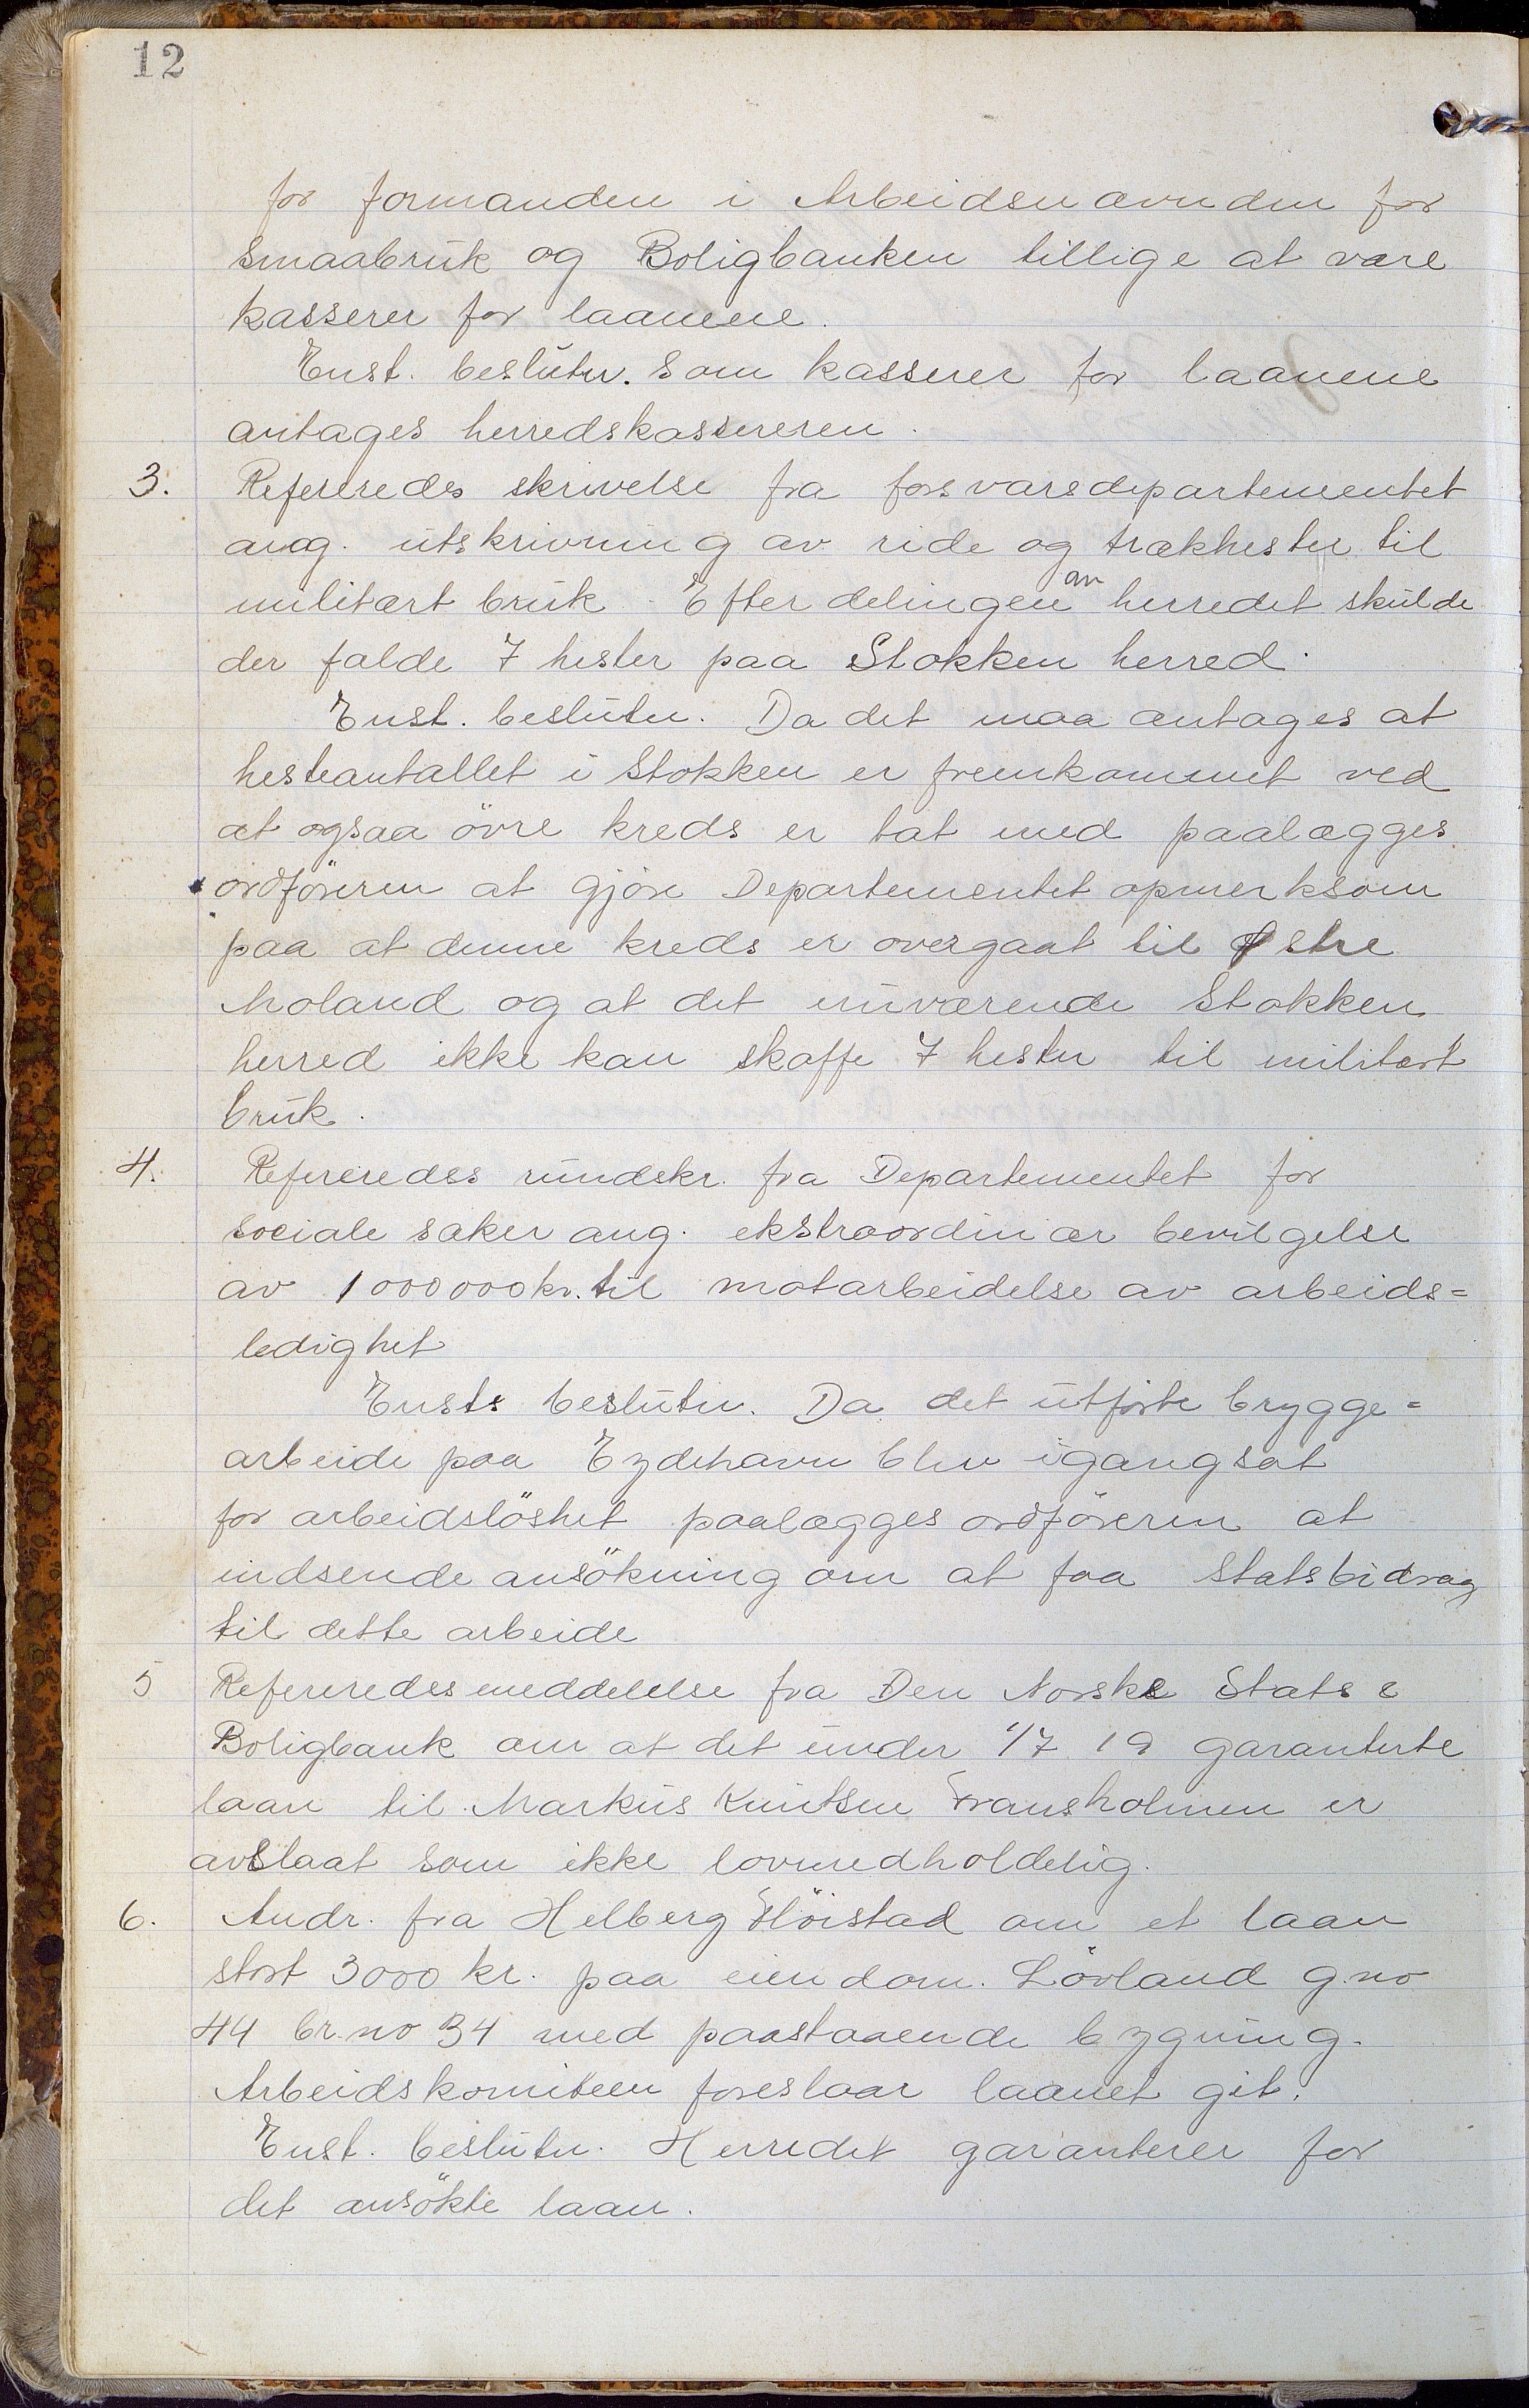 12
for formanden i Arbeidsnævnden for
Smaabruk og Boligbanken tillige at være
kasserer for laanene.
Enst. beslutn. Som kasserer for laanene
antages herredskassereren.
3. Refereredes skrivelse fra forsvarsdepartementet
ang. utskrivning av ride og trækhester til
militært bruk. Efter delingen av herredet skulde
der falde 7 hester paa Stokken herred.
Enst. beslutn. Da det maa antages at
hesteantallet i Stokken er fremkommet ved
at ogsaa övre kreds er tat med paalægges
ordföreren at gjöre Departementet opmerksom
paa at denne kreds er overgaat til Østre
Moland og at det nuværende Stokken
herred ikke kan skaffe 7 hester til militært
bruk.
4. Refereredes rundskr. fra Departementet for
sociale saker ang. ekstraordinær bevilgelse
av 1000000 kr. til motarbeidelse av arbeids=
ledighet
Ensts beslutn. Da det utförte brygge=
arbeide paa Eydehavn blev igangsat
for arbeidslöshet paalægges ordföreren at
indsende ansökning om at faa Statsbidrag
til dette arbeide
5 Refereredes meddelelse fra Den Norske Stats
Boligbank om at det under 1/7 19 garanterte
laan til Markus Knutsen Fransholmen er
avslaat som ikke lovmedholdelig.
6. Andr. fra Helberg Höistad om et laan
stort 3000 kr. paa eiendom. Lövland g.no
44 br.no 34 med paastaaende bygning.
Arbeidskomiteen foreslaar laanet git.
Enst. beslutn. Herredet garanterer for
det ansökte laan.